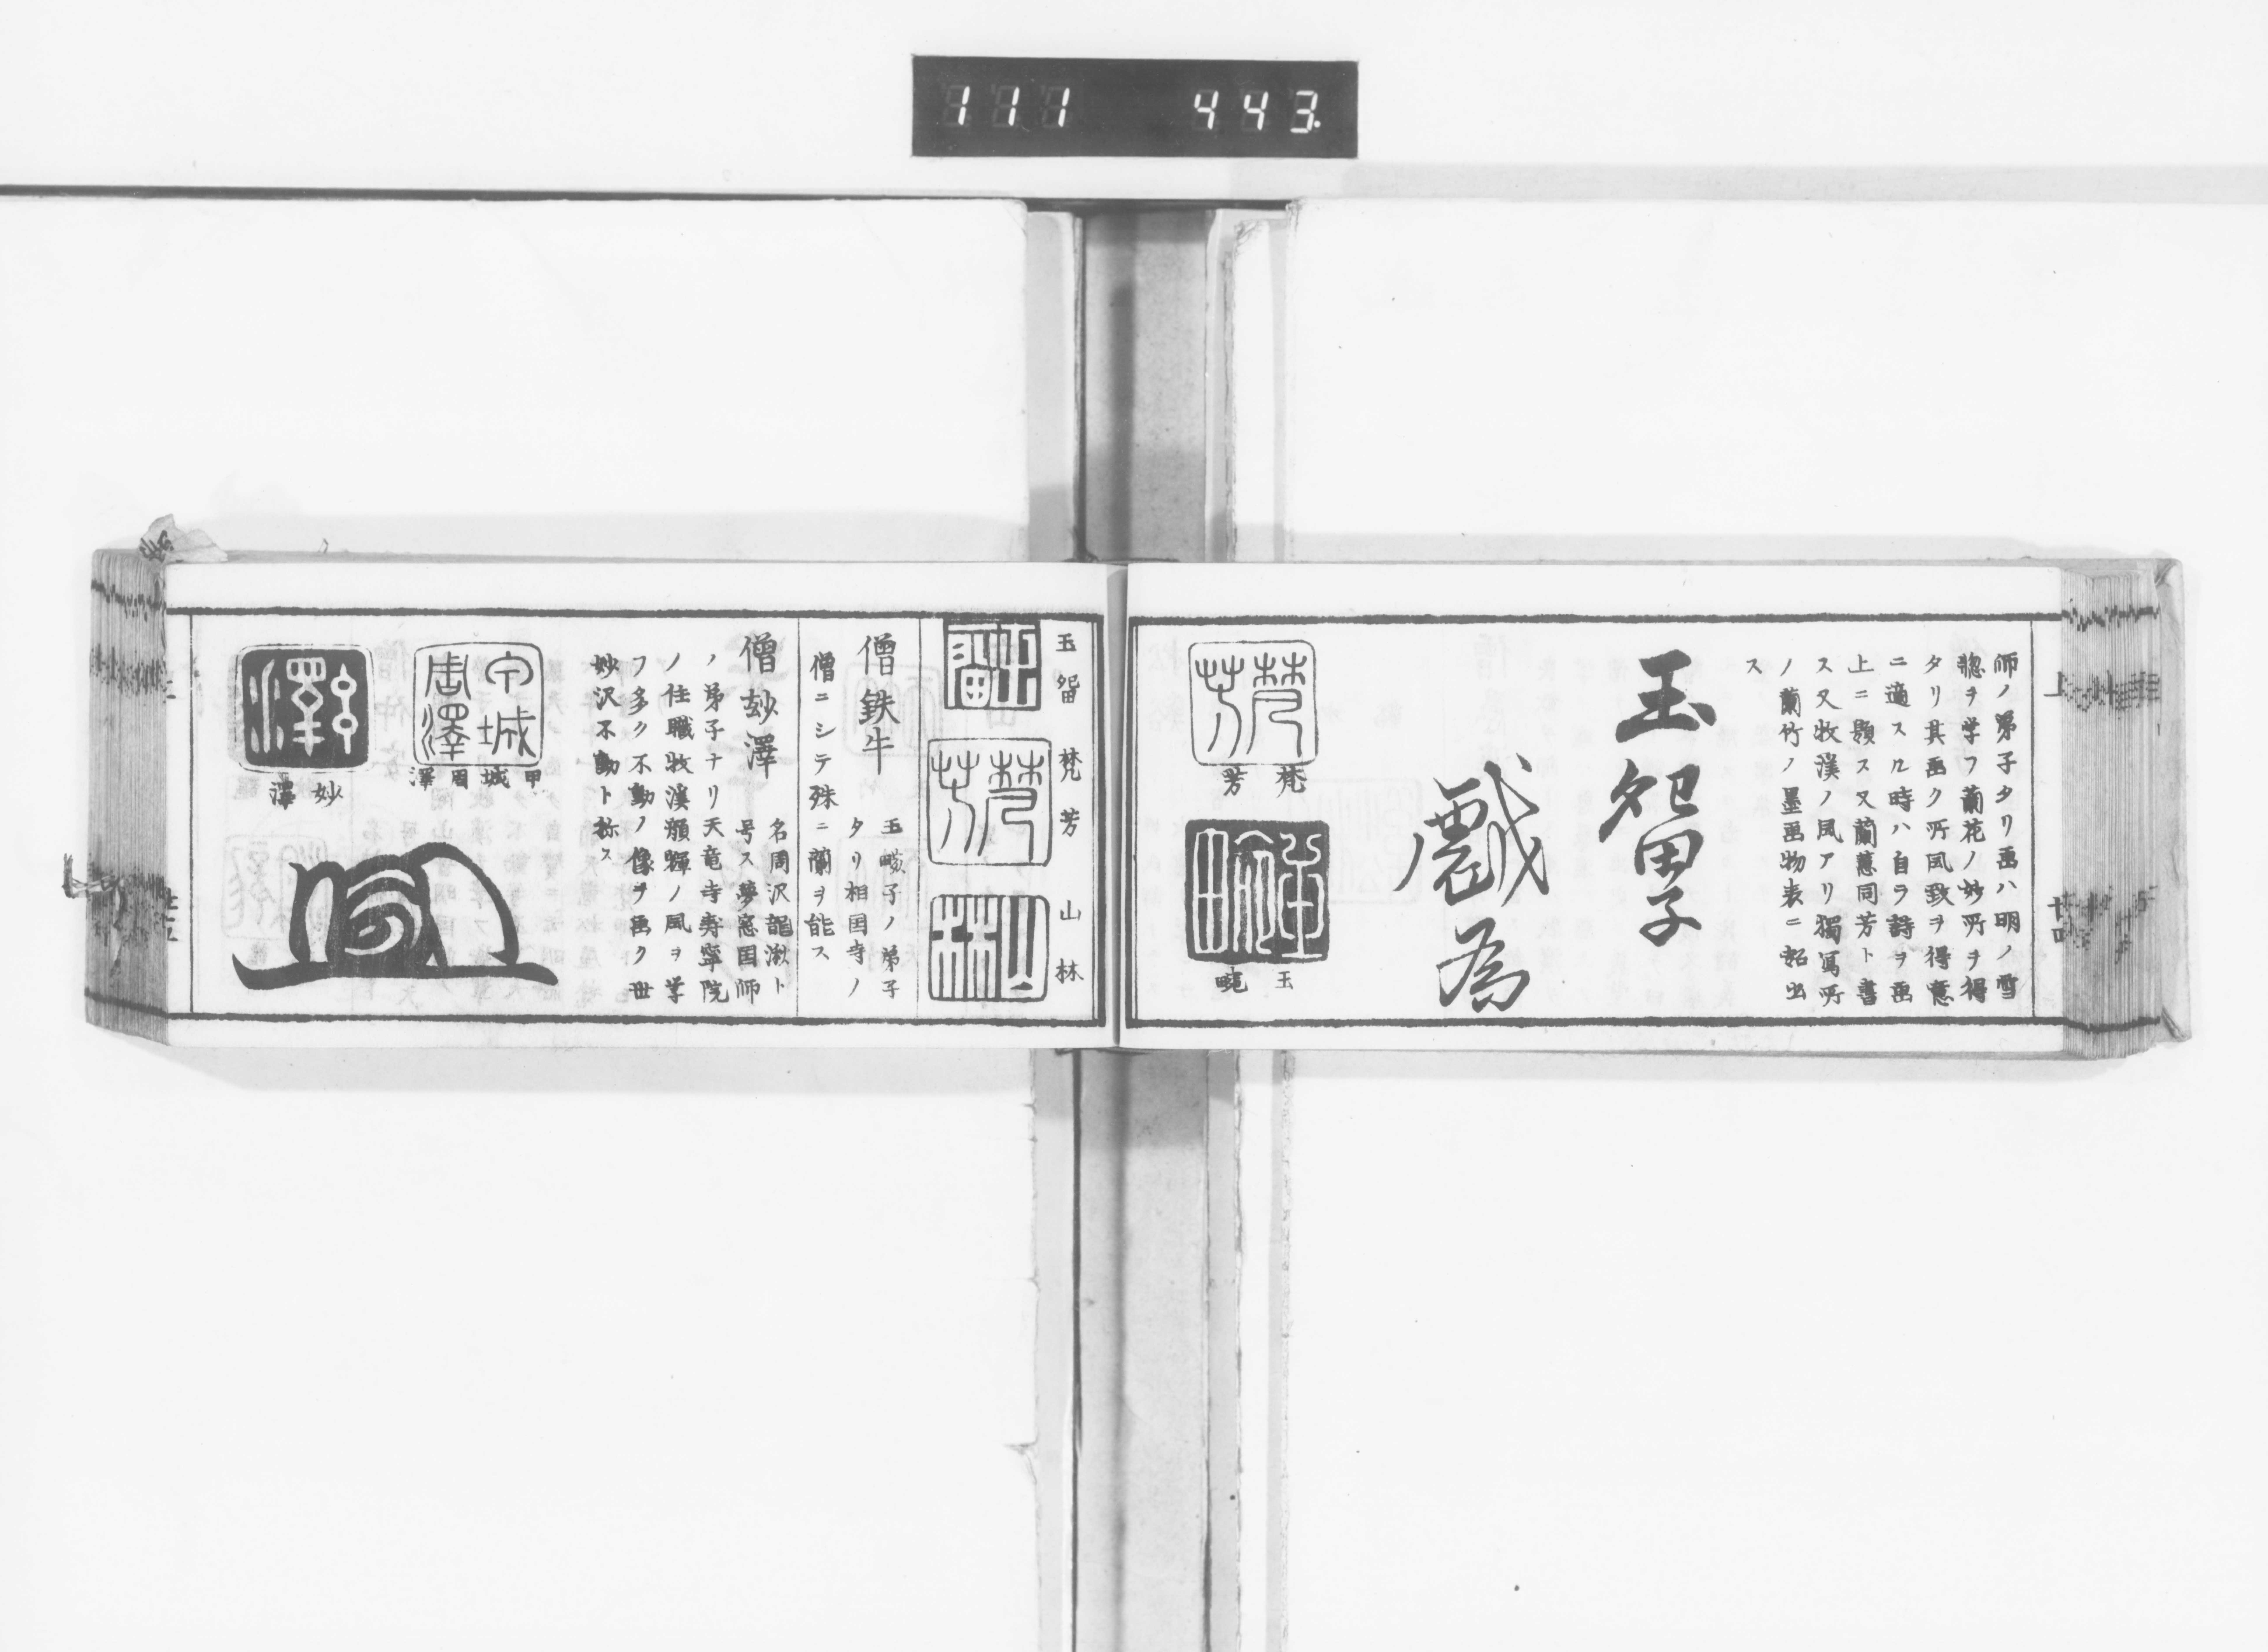 111 443.
師ノ弟子タリ画ハ明ノ雪
窓ヲ学フ蘭花ノ妙所ヲ得
タリ其画ク所風致ヲ得意
ニ適スル時ハ自ラ詩ヲ画
上ニ題ス又蘭蕙同芳ト書
ス又牧溪ノ風アリ獨冩所
ノ蘭竹ノ墨画物表ニ超出
ス
玉畹子
戯為
梵芳
玉畹
上
十四
玉畹
梵芳
山林
僧鉄牛
玉畹子ノ弟子
タリ相国寺ノ
僧ニシテ殊ニ蘭ヲ能ス
僧玅澤
名周沢龍湫ト
号ス夢窓国師
ノ弟子ナリ天竜寺寿寧院
ノ住職牧溪顔輝ノ風ヲ学
フ多ク不動ノ像ヲ画ク世
妙沢不動ト称ス
甲城周澤
妙澤